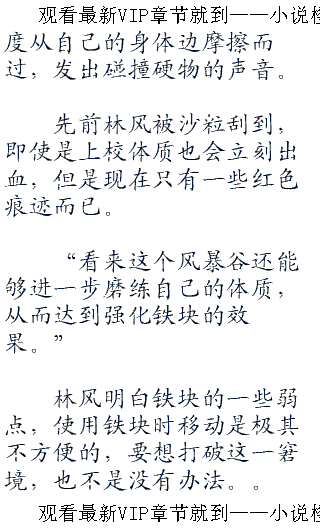 观看最新VIP章节就到——小说
度从自己的身体边摩擦而
过，发出碰撞硬物的声音。
先前林风被沙粒刮到，
即使是上校体质也会立刻出
血，但是现在只有一些红色
痕迹而已。
“看来这个风暴谷还能
够进一步磨练自己的体质，
从而达到强化铁块的效
果。”
林风明白铁块的一些弱
点，使用铁块时移动是极其
不方便的，要想打破这一窘
境，也不是没有办法。。
观看最新VIP章节就到——小说